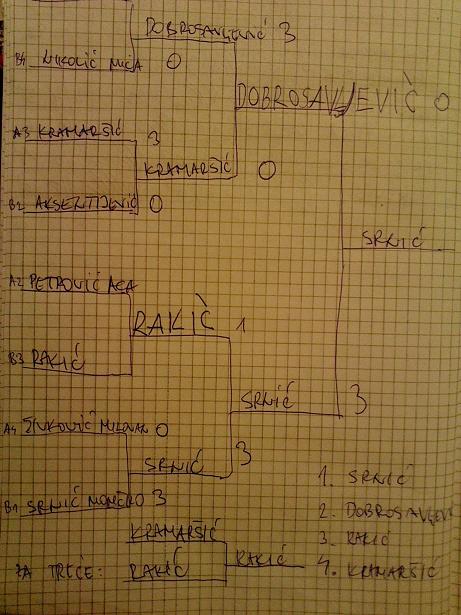 DOBROSAVLJEVIĆ 3
B4 NIKOLIĆ MIĆA 0
DOBROSAVLJEVIČ 0
A3 KRAMARŠIĆ 3
KRAMARŠIĆ 0
B2 AKSENTIJEVIĆ 0
SRNIĆ
A2 PETROVIĆ ACA
RAKIČ 1
B3 RAKIĆ
SRNIĆ 3
A4 ŽIVKOVIĆ MILOVAN 0
SRNIĆ 3
B1 SRNIĆ MOMČILO 3
1. SRNIĆ
2. DOBROSAVLJEVI
KRAMARŠIĆ
3. RAKIĆ
ZA TREĆE: RAKIĆ
RAKIĆ
4. KRAMARŠIĆ